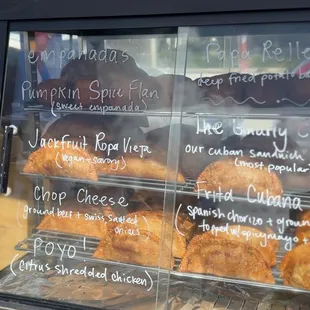 empanadas
Pumpkin Spice Flan
(sweet empanada)
Jackfruit Ropa Vieja
(vegan + savory)
Chop Cheese
ground beef + swiss
onions
POYO!
(citrus shredded chicken)
Papa Relle
deep fried potato
The Gnarly
our cuban sandwich
(most popular
Frita Cubana
(spanish chorizo + groun
topped w/